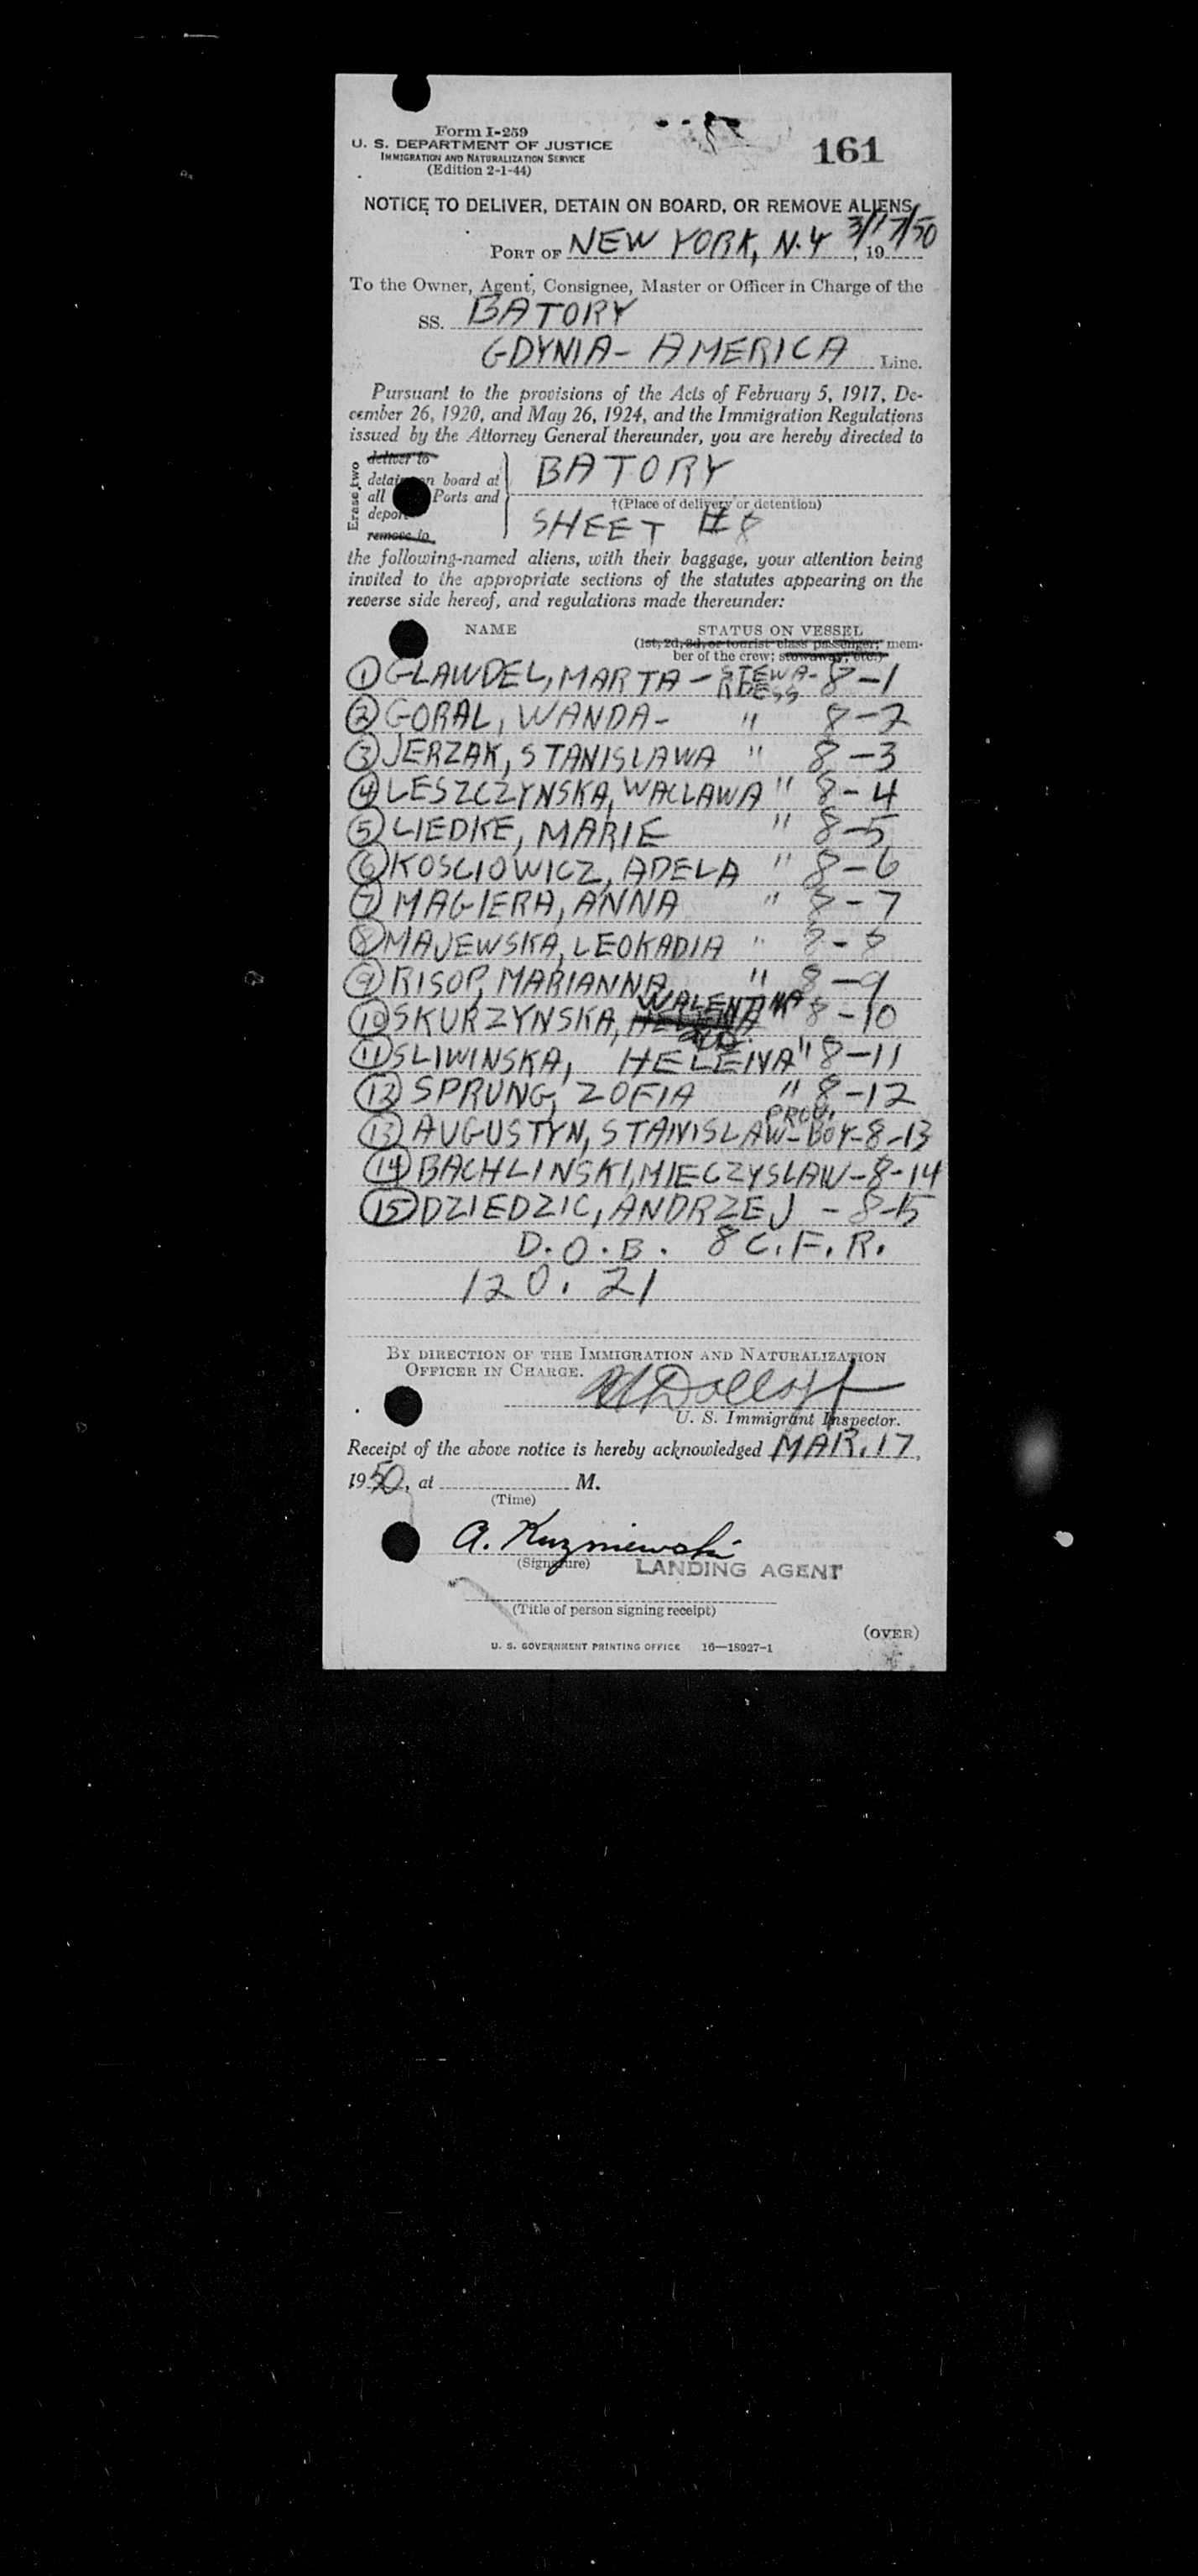 Form I-259
U. S. DEPARTMENT OF JUSTICE
IMMIGRATION AND NATURALIZATION SERVICE
(Edition 2-1-44)
161
NOTICE TO DELIVER, DETAIN ON BOARD, OR REMOVE ALIENS
PORT OF NEW YORK, N.Y 3/17/50, 19
To the Owner, Agent, Consignee, Master or Officer in Charge of the
SS. BATORY
GDYNIA-AMERICA Line.
Pursuant to the provisions of the Acts of February 5, 1917, De-
cember 26, 1920, and May 26, 1924, and the Immigration Regulations
issued by the Attorney General thereunder, you are hereby directed to
Erase two
deliver to
detain on board at
all Ports and
deport
remove to
BATORY
†(Place of delivery or detention)
SHEET #8
the following-named aliens, with their baggage, your attention being
invited to the appropriate sections of the statutes appearing on the
reverse side hereof, and regulations made thereunder:
NAME STATUS ON VESSEL
(1st, 2d, 3d, or tourist class passenger; mem-
ber of the crew; stowaway, etc.)
1 GLAWDEL, MARTA - STEWA-RDESS 8-1
2 GORAL, WANDA- " 8-2
3 JERZAK, STANISLAWA " 8-3
4 LESZCZYNSKA, WACLAWA " 8-4
5 LIEDKE, MARIE " 8-5
6 KOSCIOWICZ, ADELA " 8-6
7 MAGIERA, ANNA " 8-7
8 MAJEWSKA, LEOKADIA " 8-8
9 RISOP, MARIANNA " 8-9
10 SKURZYNSKA, WALENTINA " 8-10
11 SLIWINSKA, HELENA " 8-11
12 SPRUNG, ZOFIA " 8-12
13 AUGUSTYN, STANISLAW- PROV. BOY-8-13
14 BACHLINSKI, MIECZYSLAW-8-14
15 DZIEDZIC, ANDRZEJ - 8-15
D.O.B. 8 C.F.R.
120.21
BY DIRECTION OF THE IMMIGRATION AND NATURALIZATION
OFFICER IN CHARGE.
Dolloff
U. S. Immigrant Inspector.
Receipt of the above notice is hereby acknowledged MAR. 17,
1950, at M.
(Time)
A. Kuzniewski
(Signature) LANDING AGENT
(Title of person signing receipt)
(OVER)
U. S. GOVERNMENT PRINTING OFFICE 16—18927-1